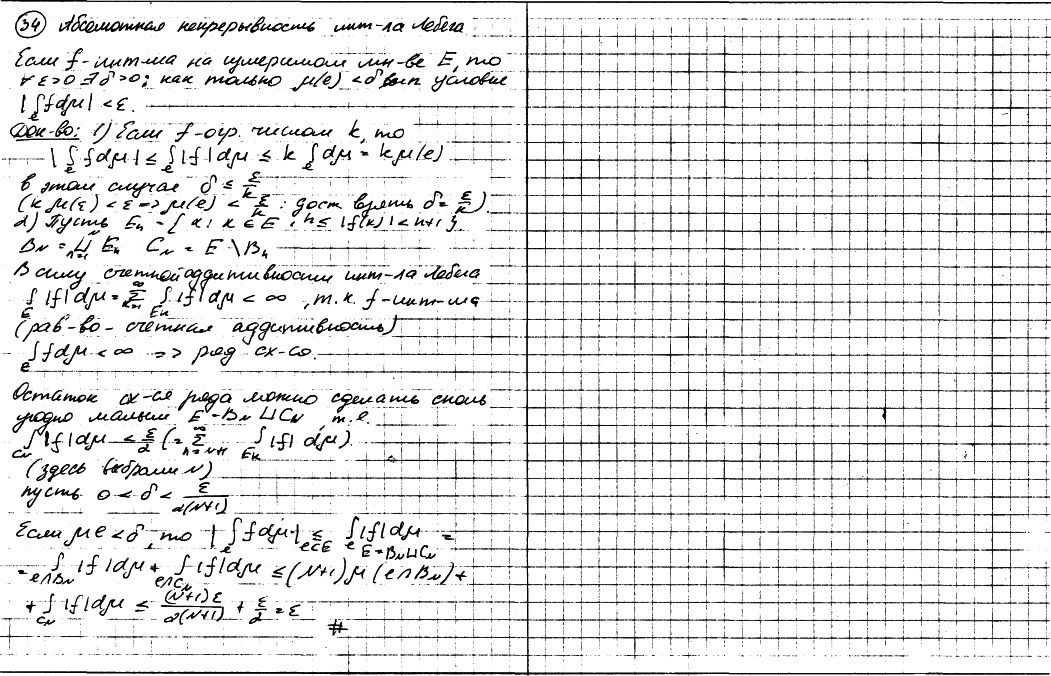 34 Абсолютная непрерывность инт-ла Лебега.
Если f-инт-ма на измеримом мн-ве E, то
∀ε>0 ∃δ>0; как только μ(e)<δ вып условие
|∫_e f dμ| < ε.
Док-во: 1) Если f-огр. числом k, то
|∫_e f dμ| ≤ ∫_e |f| dμ ≤ k ∫_e dμ = k μ(e)
в этом случае δ ≤ ε/k
(k μ(ε) < ε => μ(e) < ε/k : дост взять δ = ε/k)
2) Пусть E_n = {x: x∈E, n ≤ |f(x)| < n+1}.
B_N = ⊔_{n=1}^N E_n C_N = E \ B_n
В силу счетной аддитивности инт-ла Лебега
∫_E |f| dμ = Σ_{n=1}^∞ ∫_{E_n} |f| dμ < ∞, т.к. f-инт-ма
(рав-во - счетная аддитивность)
∫_e f dμ < ∞ => ряд сх-ся.
Остаток сх-ся ряда можно сделать сколь
угодно малым E = B_N ⊔ C_N т.е.
∫_{C_N} |f| dμ ≤ ε/2 (= Σ_{n=N+1}^∞ ∫_{E_n} |f| dμ).
(здесь выбрали N)
пусть 0 < δ < ε/2(N+1)
Если μe < δ, то |∫_e f dμ| ≤_{e⊂E} ∫_e |f| dμ =_{E=B_N⊔C_N}
= ∫_{e∩B_N} |f| dμ + ∫_{e∩C_N} |f| dμ ≤ (N+1) μ(e∩B_N) +
+ ∫_{C_N} |f| dμ ≤ (N+1)ε/2(N+1) + ε/2 = ε
#